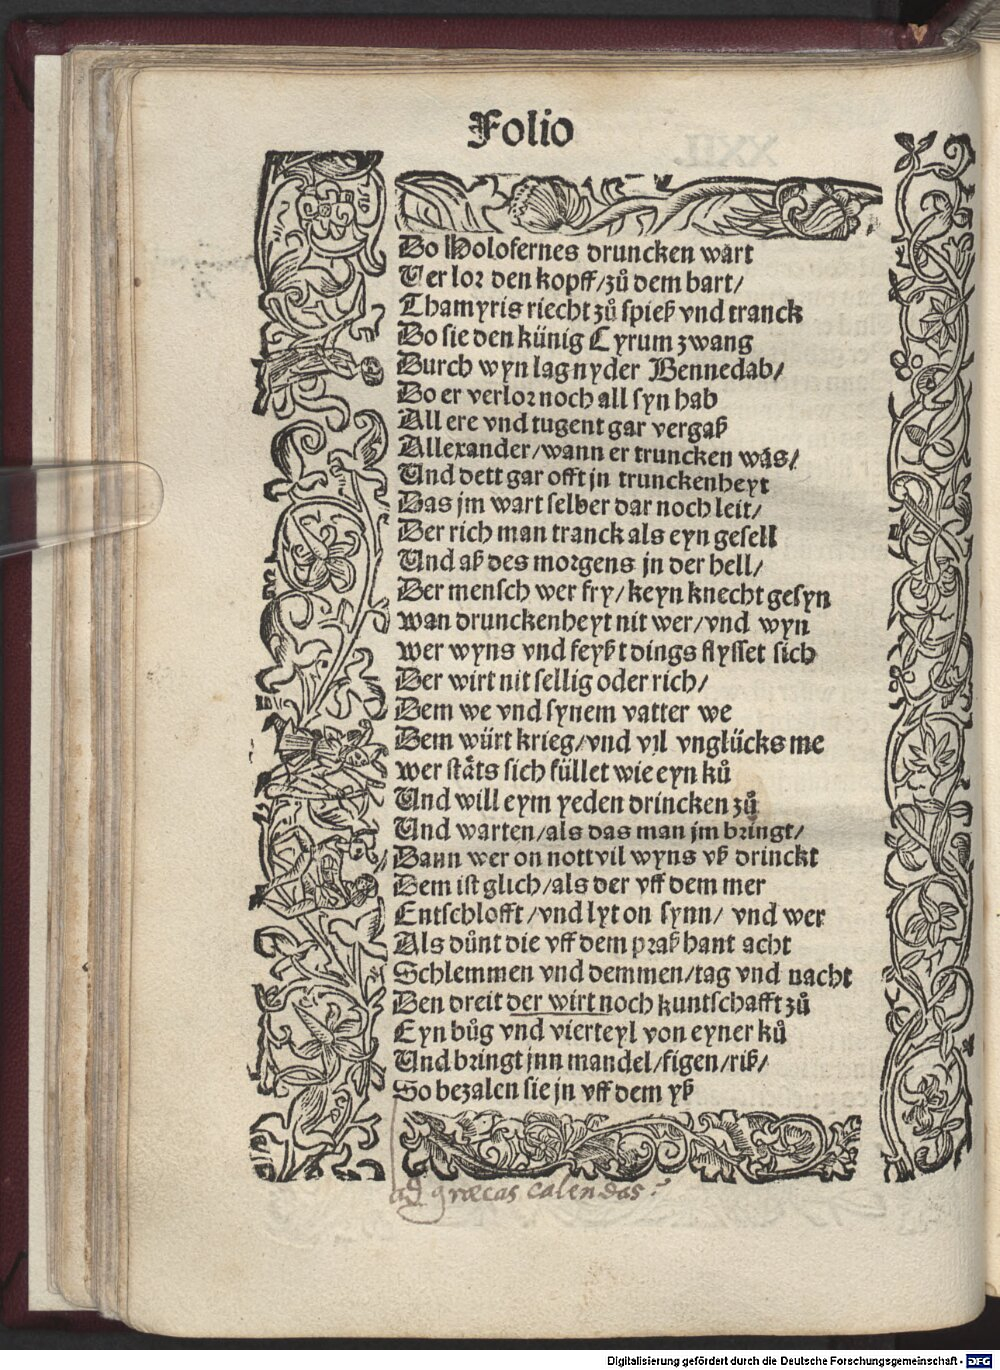 Folio
Do Holofernes druncken wart
Verlor den kopff/zů dem bart/
Thamyris riecht zů spieß vnd tranck
Do sie den künig Cyrum zwang
Durch wyn lag nyder Bennedab/
Do er verlor noch all syn hab
All ere vnd tugent gar vergaß
Allexander/wann er truncken was/
Und dett gar offt jn trunckenheyt
Das jm wart selber dar noch leit/
Der rich man tranck als eyn gesell
Und aß des morgens jn der hell/
Der mensch wer fry/keyn knecht gesyn
wan drunckenheyt nit wer/vnd wyn
wer wyns vnd feyßt dings flysset sich
Der wirt nit sellig oder rich/
Dem we vnd synem vatter we
Dem würt krieg/vnd vil vnglücks me
wer stäts sich füllet wie eyn ků
Und will eym yeden drincken zů
Und warten/als das man jm bringt/
Dann wer on nott vil wyns vß drinckt
Dem ist glich/als der vff dem mer
Entschlofft/vnd lyt on synn/ vnd wer
Als důnt die vff dem praß hant acht
Schlemmen vnd demmen/tag vnd nacht
Den dreit der wirt noch kuntschafft zů
Eyn bůg vnd vierteyl von eyner ků
Und bringt jnn mandel/figen/riß/
So bezalen sie jn vff dem yß
ad græcas calendas:
Digitalisierung gefördert durch die Deutsche Forschungsgemeinschaft - DFG